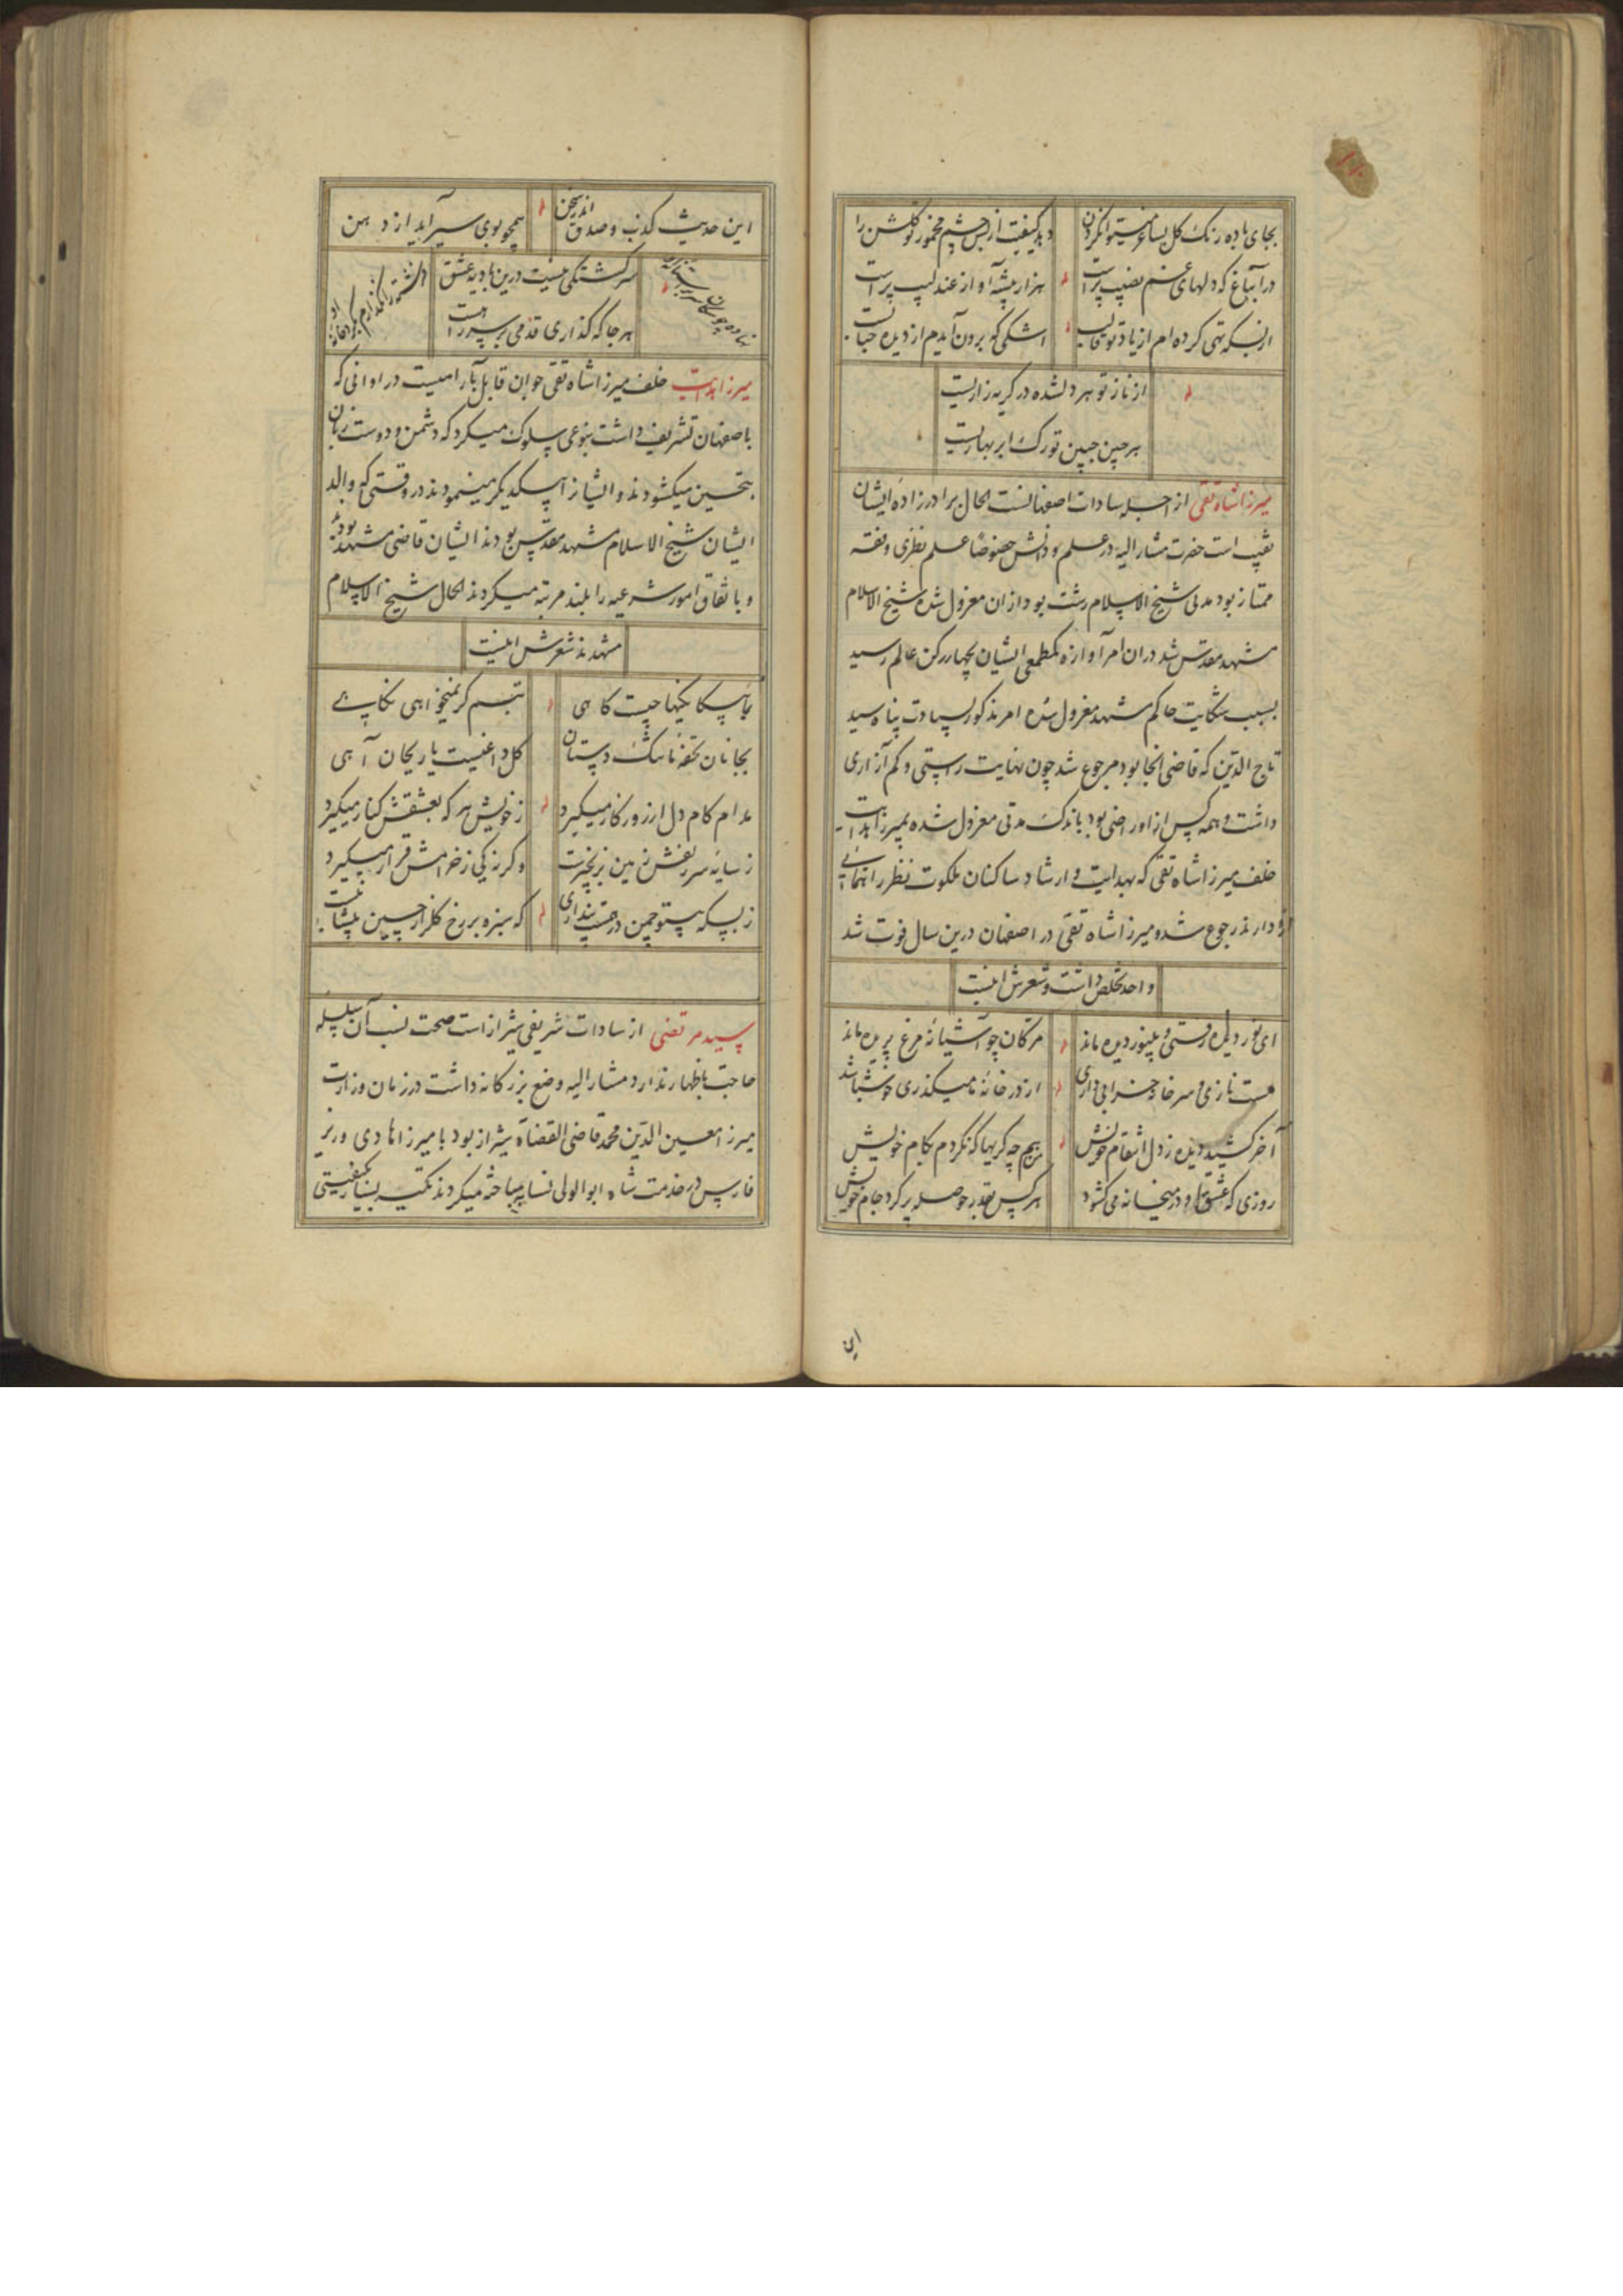 بجای باده رنگ گل بساغر میتوانکردن
دهد کیفیت از بس چشم مخمور تو گلشن را
در آن باغ که دلهای غم نصیب پر است
هزار بیشه آواز عندلیب پر است
از بسکه تهی کرده ام از یاد تو قالب
اشکی که برون آیدم از دیده حبابست
از ناز تو هر دلشده در گریه زاریست
هر چین جبین تو رگ ابر بهاریست
میرزا شاه تقی از اجله سادات اصفهانست الحال برادرزاده ایشان
نقیب است حضرت مشار الیه در علم و دانش خصوصا علم نظری و فقه
ممتاز بود مدتی شیخ الاسلام رشت بود از ان معزول شده شیخ الاسلام
مشهد مقدس شد در ان امر آوازه کم طمعی ایشان بچهار رکن عالم رسید
بسبب شکایت حاکم مشهد معزول شده امر مذکور بسیادت پناه سید
تاج الدین که قاضی انجا بود مرجوع شد چون نهایت راستی و کم آزاری
داشت و همه کس از او راضی بود باندک مدتی معزول شده بمیرزا هدایت
خلف میرزا شاه تقی که بهدایت و ارشاد ساکنان ملکوت نظر راهنمائی
او دارند رجوع شد و میرزا شاه تقی در اصفهان درین سال فوت شد
واحد تخلص داشت و شعرش اینست
ای نور دیده رفتی و بینور دیده ماند
مژگان چو آشیانه مرغ پریده ماند
مست نازی و سر خانه خرابی داری
از در خانه ما میگذری خوش باشد
آخر کشید دیده ز دل انتقام خویش
بیهم چه گریها که نکردم بکام خویش
روزی که عشق او در میخانه می کشود
هر کس بقدر حوصله پر کرد جام خویش
این
این حدیث کذب و صدق اندر سخن
همچو بوی سیر آید از دهن
سرگشتگی نیست درین بادیه عشق
هر جا که گذاری قدمی بر سر راهست
میرزا هدایت خلف میرزا شاه تقی جوان قابل آرامیست در اوانی که
باصفهان تشریف داشت بنوعی سلوک میکرد که دشمن و دوست زبان
بتحسین میکشودند و ایشانرا بیکدیگر مینمودند در وقتی که والد
ایشان شیخ الاسلام مشهد مقدس بودند ایشان قاضی مشهد بودند
و باتفاق امور شرعیه را بلند مرتبه میکردند الحال شیخ الاسلام
مشهدند شعرش اینست
بپاس کا یکیها چیست کاهی
تبسم گر نمیخواهی نگاهی
بجانان تحفه ما تنگ دستان
گل داغیست یا ریحان آهی
مدام کام دل از روزگار میگیرد
ز خویش هر که بعشقش کنار میگیرد
ز سایه سر زلفش زمین بزنجیرست
وگرنه کی ز خرامش قرار میگیرد
ز بسکه بیتو چمن درهمست پنداری
که سبزه بر رخ گلزار چین پیشانیست
سید مرتضی از سادات شریفی شیراز است صحت نسب آن سلسله
حاجت باظهار ندارد مشار الیه وضع بزرگانه داشت در زمان وزارت
میرزا معین الدین محمد قاضی القضاة شیراز بود با میرزا هادی وزیر
فارس در خدمت شاه ابو الولی نسابه مباحثه میکردند نکته بسیار بکیفیتی